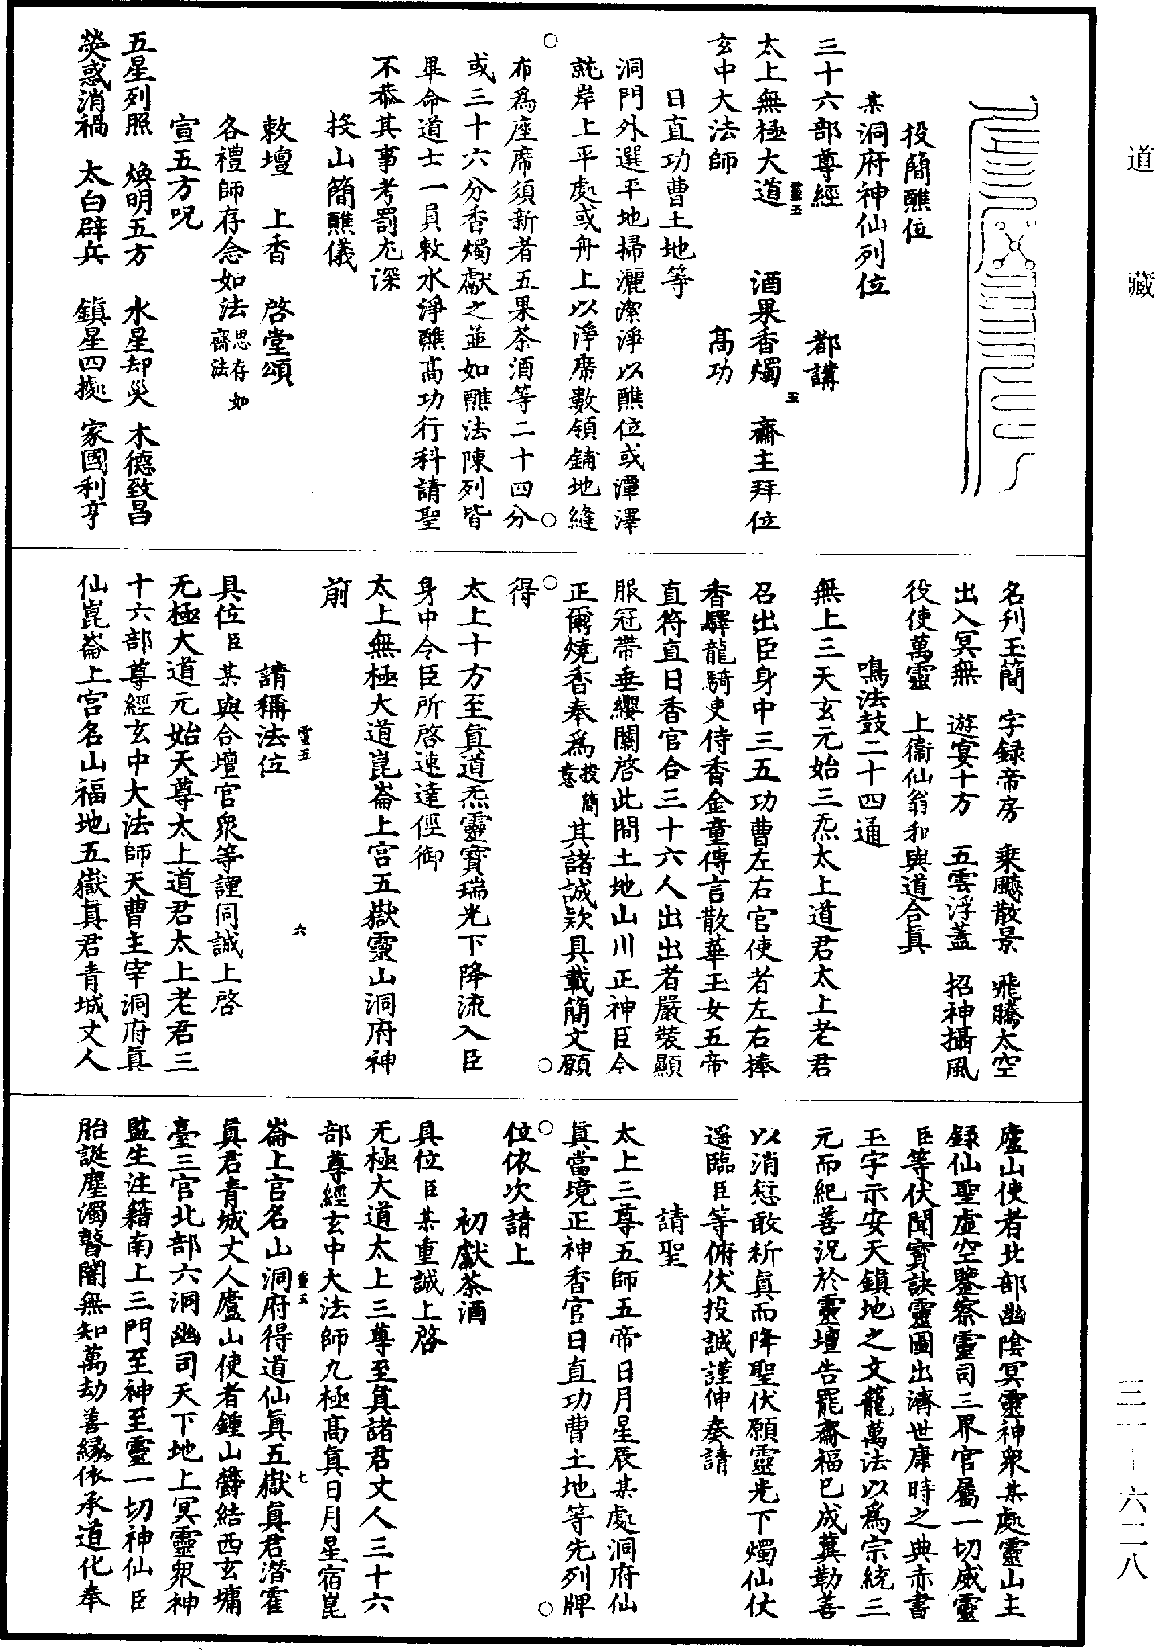 道藏
投簡醮位
某洞府神仙列位
三十六部尊經　都講
太上無極大道　酒果香燭　齋主拜位
玄中大法師　高功
日直功曹土地等
洞門外選平地掃灑潔淨以醮位或潭澤
就岸上平處或舟上以淨席數領鋪地縫
布為座席須新者五果茶酒等二十四分
或三十六分香燭獻之並如醮法陳列皆
畢命道士一員敕水淨醮高功行科請聖
不恭其事考罰尤深
投山簡醮儀
敕壇　上香　啓堂頌
各禮師存念如法思存如齋法
宣五方呪
五星列照　煥明五方　水星却災　木德致昌
熒惑消禍　太白辟兵　鎮星四據　家國利亨
名刋玉簡　字錄帝房　乘飈散景　飛騰太空
出入冥無　遊宴十方　五雲浮蓋　招神攝風
役使萬靈　上衞仙翁和與道合眞
鳴法鼓二十四通
無上三天玄元始三炁太上道君太上老君
召出臣身中三五功曹左右官使者左右捧
香驛龍騎吏侍香金童傳言散華玉女五帝
直符直日香官合三十六人出出者嚴裝顯
服冠帶垂纓關啓此間土地山川正神臣今
正爾燒香奉為投簡意其諸誠欵具載簡文願
得
太上十方至眞道炁靈寶瑞光下降流入臣
身中令臣所啓速達徑御
太上無極大道崑崙上宮五嶽靈山洞府神
前
請稱法位
具位臣某與合壇官衆等謹同誠上啓
无極大道元始天尊太上道君太上老君三
十六部尊經玄中大法師天曹主宰洞府眞
仙崑崙上宮名山福地五嶽眞君青城丈人
廬山使者北部幽陰冥靈神衆某處靈山主
錄仙聖虛空鑒察靈司三界官屬一切威靈
臣等伏聞寶訣靈圖出濟世康時之典赤書
玉字示安天鎮地之文籠萬法以爲宗統三
元而紀善況於靈壇告罷齋福已成冀勤善
以消愆敢祈眞而降聖伏願靈光下燭仙仗
遥臨臣等俯伏投誠謹伸奏請
請聖
太上三尊五師五帝日月星辰某處洞府仙
眞當境正神香官日直功曹土地等先列牌
位依次請上
初獻茶酒
具位臣某重誠上啓
无極大道太上三尊至眞諸君丈人三十六
部尊經玄中大法師九極高眞日月星宿崑
崙上宮名山洞府得道仙眞五嶽眞君潛霍
眞君青城丈人廬山使者鍾山欝結西玄墉
臺三官北部六洞幽司天下地上冥靈衆神
監生注籍南上三門至神至靈一切神仙臣
胎誕塵濁瞽闇無知萬劫善緣依承道化奉
三一－六二八